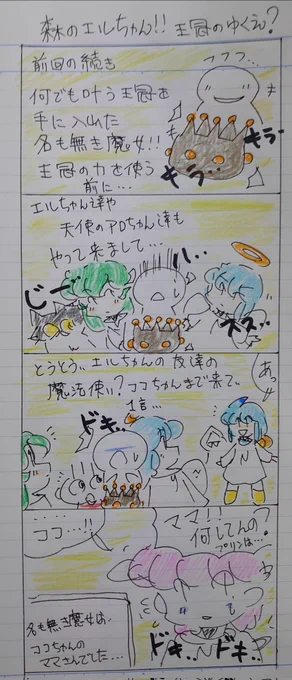 森のエルちゃん!! 王冠のゆくえ?
前回の続き
フフフ…
何でも叶う王冠を
手に入れた
名も無き魔女!!
王冠の力を使う
前に…
キラ
キラ
エルちゃん達や
天使のアロちゃん達も
やって来まして…
じー
ハ..
ズズ..
とうとう、エルちゃんの友達の
魔法使い?ココちゃんまで来て、
1言…
あっ!!
ドキ..
ママ!!
何してんの?
プリンは…
ココ…!!
ドキ..ドキ..
名も無き魔女は、
ココちゃんの
ママさんでした…